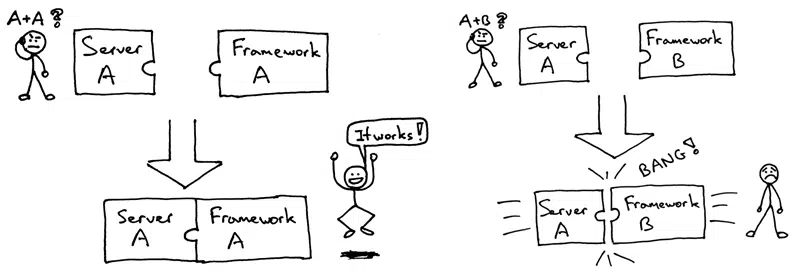 A+A ?
Server
A
Framework
A
It works!
Server
A
Framework
A
A+B ?
Server
A
Framework
B
BANG!
Server
A
Framework
B